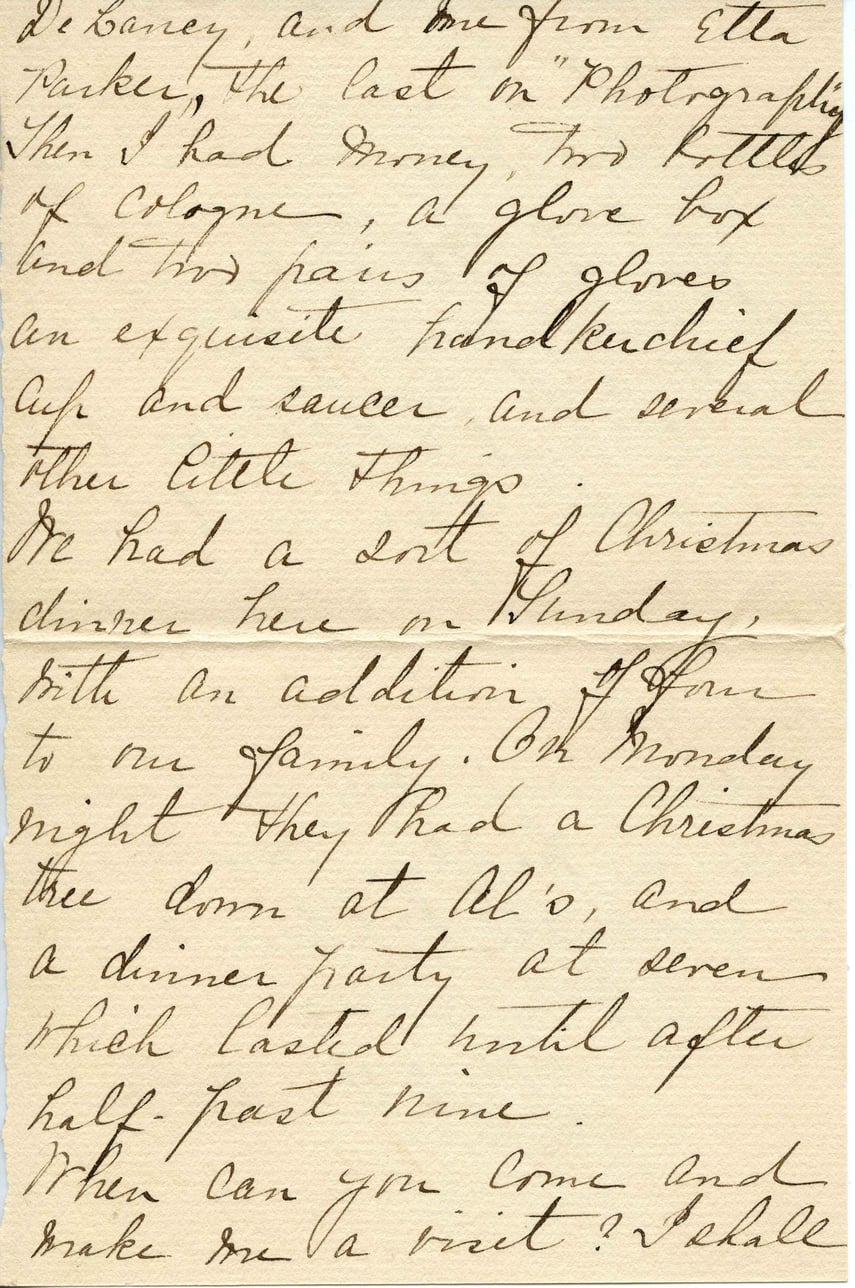 DeLancy, and one from Etta
Parker, the last on "Photography"
Then I had money, two bottles
of cologne, a glove box
and two pairs of gloves
an exquisite handkerchief
cup and saucer, and several
other little things.
We had a sort of Christmas
dinner here on Sunday,
with an addition of four
to our family. On Monday
night they had a Christmas
tree down at Al's, and
a dinner party at seven
which lasted until after
half-past nine.
When can you come and
make me a visit? I shall